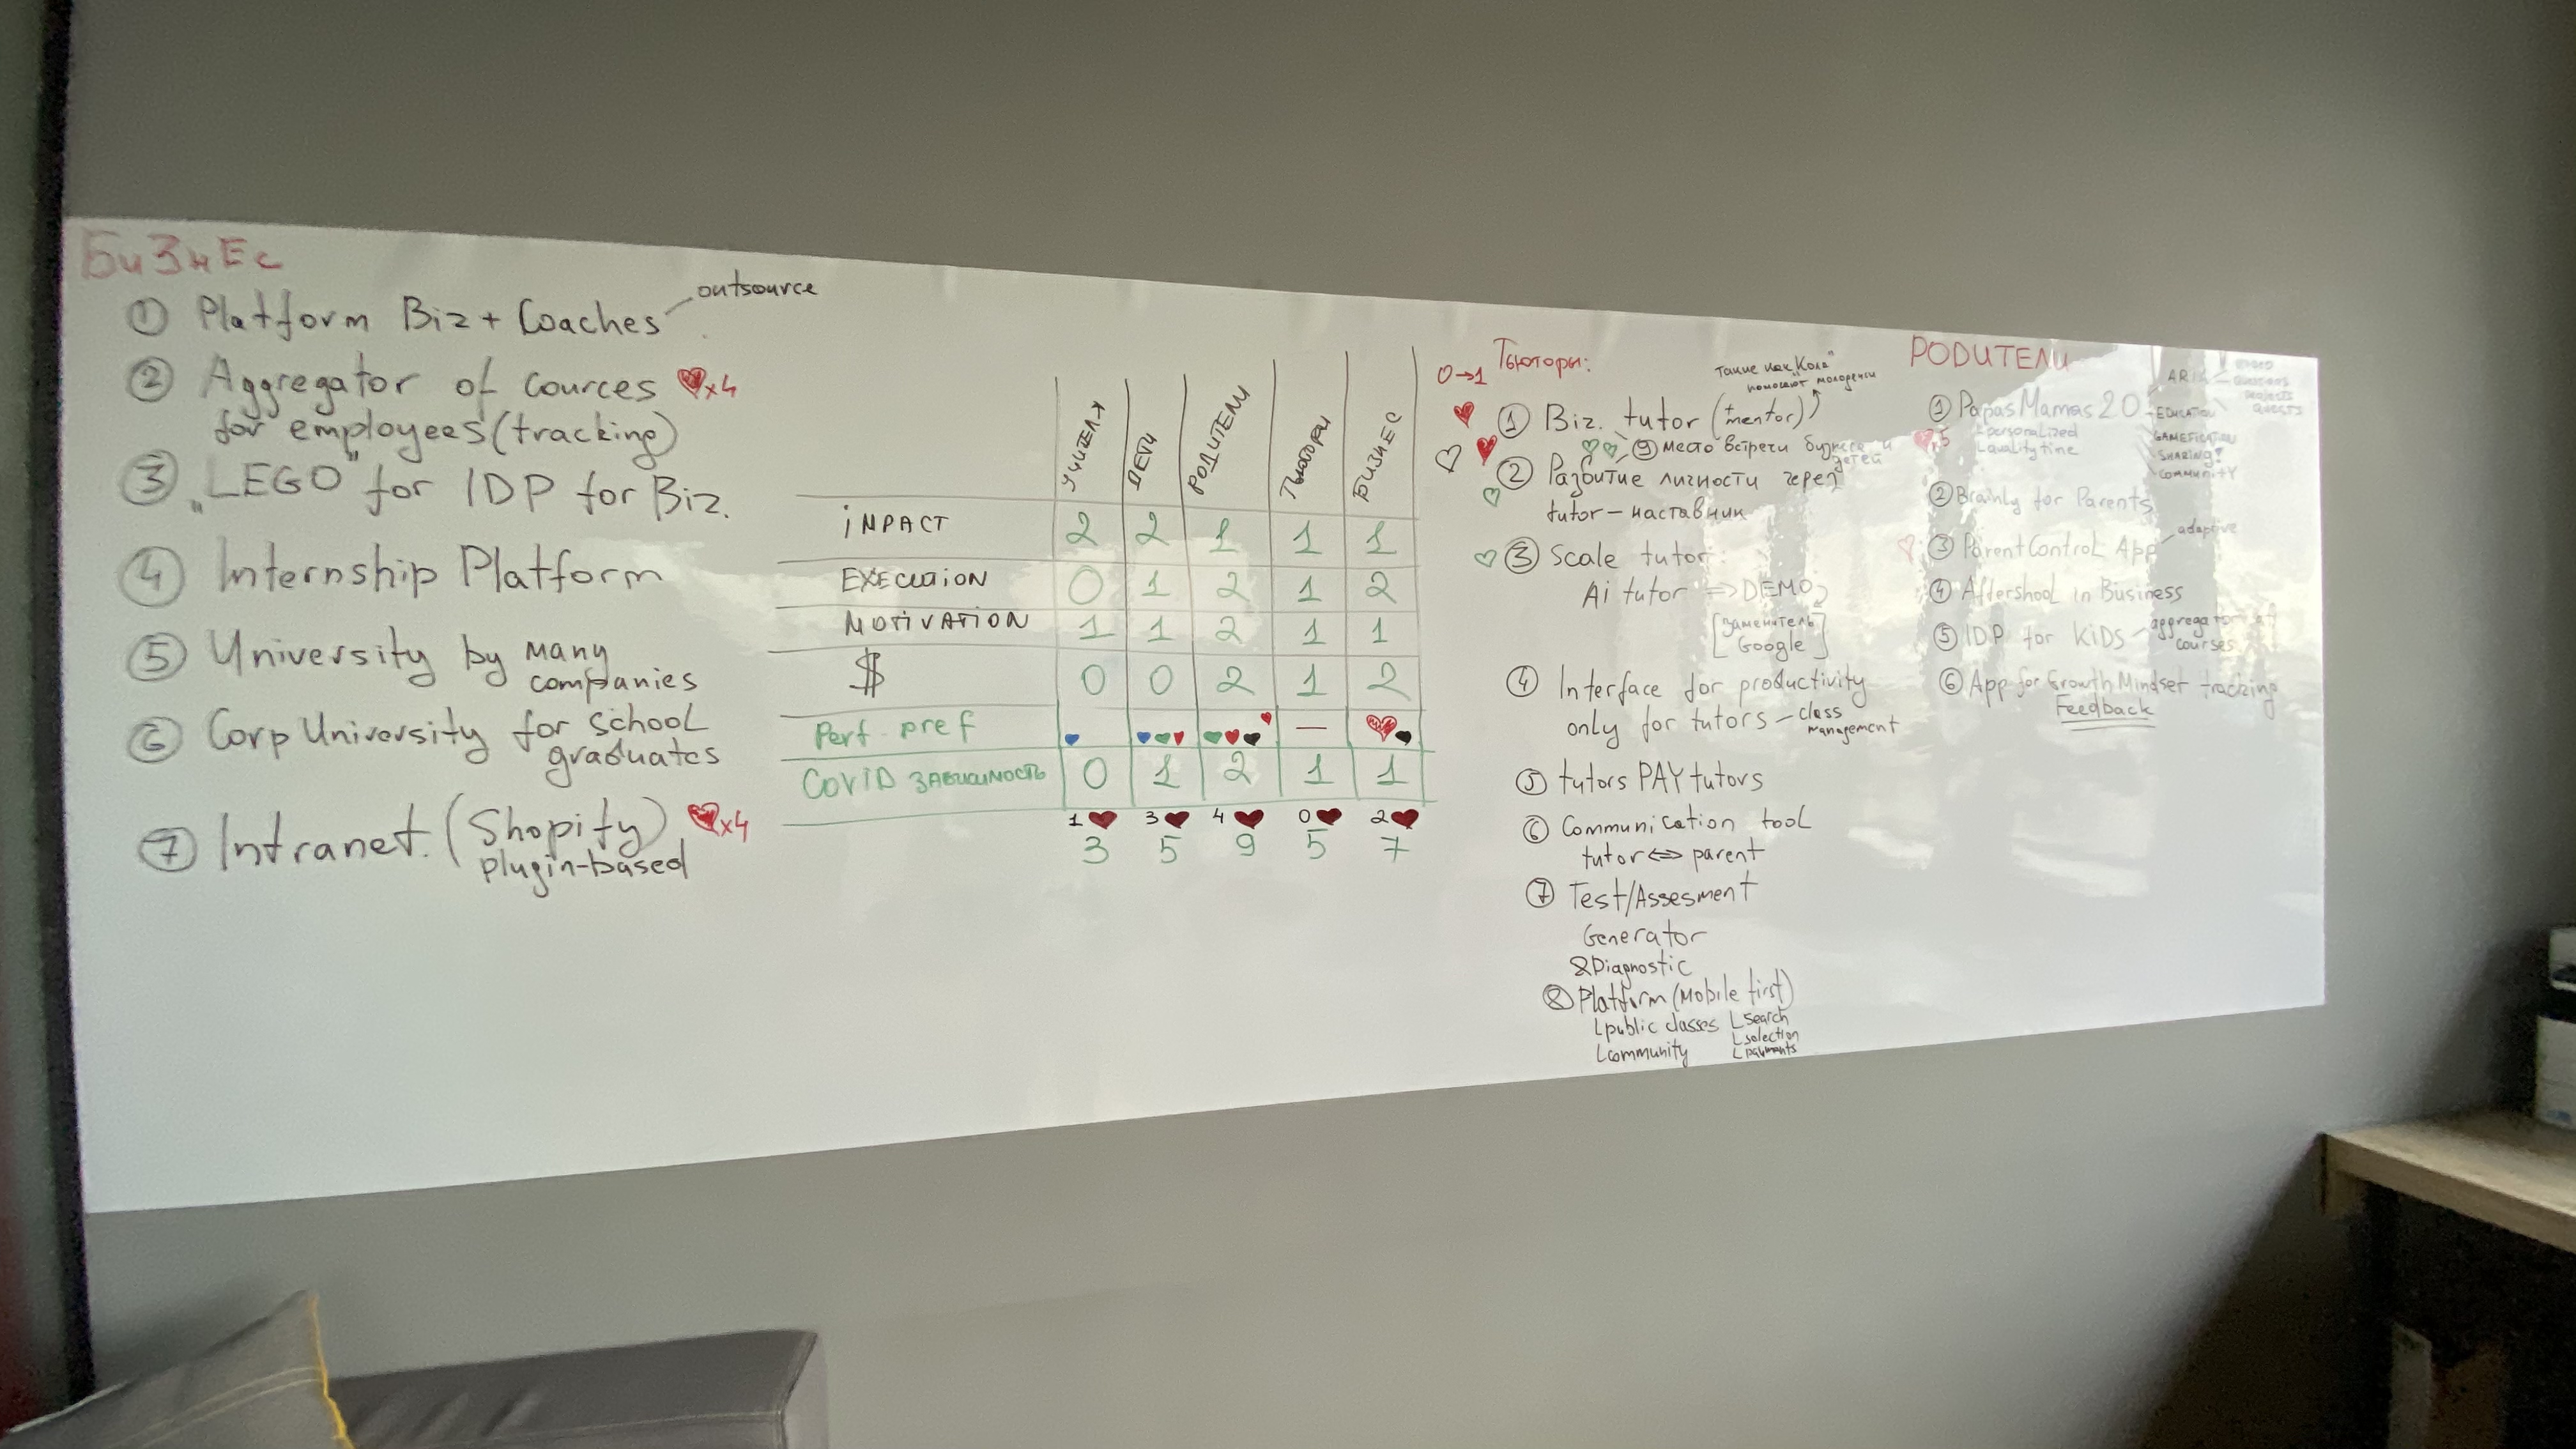 БиЗнЕс
① Platform Biz + Coaches
outsource
② Aggregator of cources x4
for employees (tracking)
③ „LEGO" for IDP for Biz.
④ Internship Platform
⑤ University by many
companies
⑥ Corp University for school
graduates
⑦ Intranet. (Shopify) x4
plugin-based
ДЕТИ РОДИТЕЛИ Тьюторы БИЗНЕС
IMPACT 2 2 1 1 1
EXECUTION 0 1 2 1 2
MOTIVATION 1 1 2 1 1
$ 0 0 2 1 2
Perf. pref —
COVID ЗАВИСИМОСТЬ 0 1 2 1 1
1 3 4 0 2
3 5 9 5 7
0→1 Тьюторы:
такие как "Коля"
помогают
① Biz. tutor (+mentor)
⑨ Место встречи бизнеса и
детей
② Развитие личности через
tutor — наставник
③ Scale tutor:
Ai tutor => DEMO
[заменитель
Google]
④ Interface for productivity
only for tutors — class
management
⑤ tutors PAY tutors
⑥ Communication tool
tutor <=> parent
⑦ Test/Assesment
Generator
&Diagnostic
⑧ Platform (Mobile first)
public classes search
selection
community payments
РОДИТЕЛИ
① PapasMamas 2.0
personalized
quality time
EDUCATION
GAMEFICATION
SHARING
COMMUNITY
② Brainly for Parents
③ Parent Control App
adaptive
④ Aftershool in Business
⑤ IDP for KiDS — aggregator of
courses
⑥ App for Growth Mindset tracking
Feedback